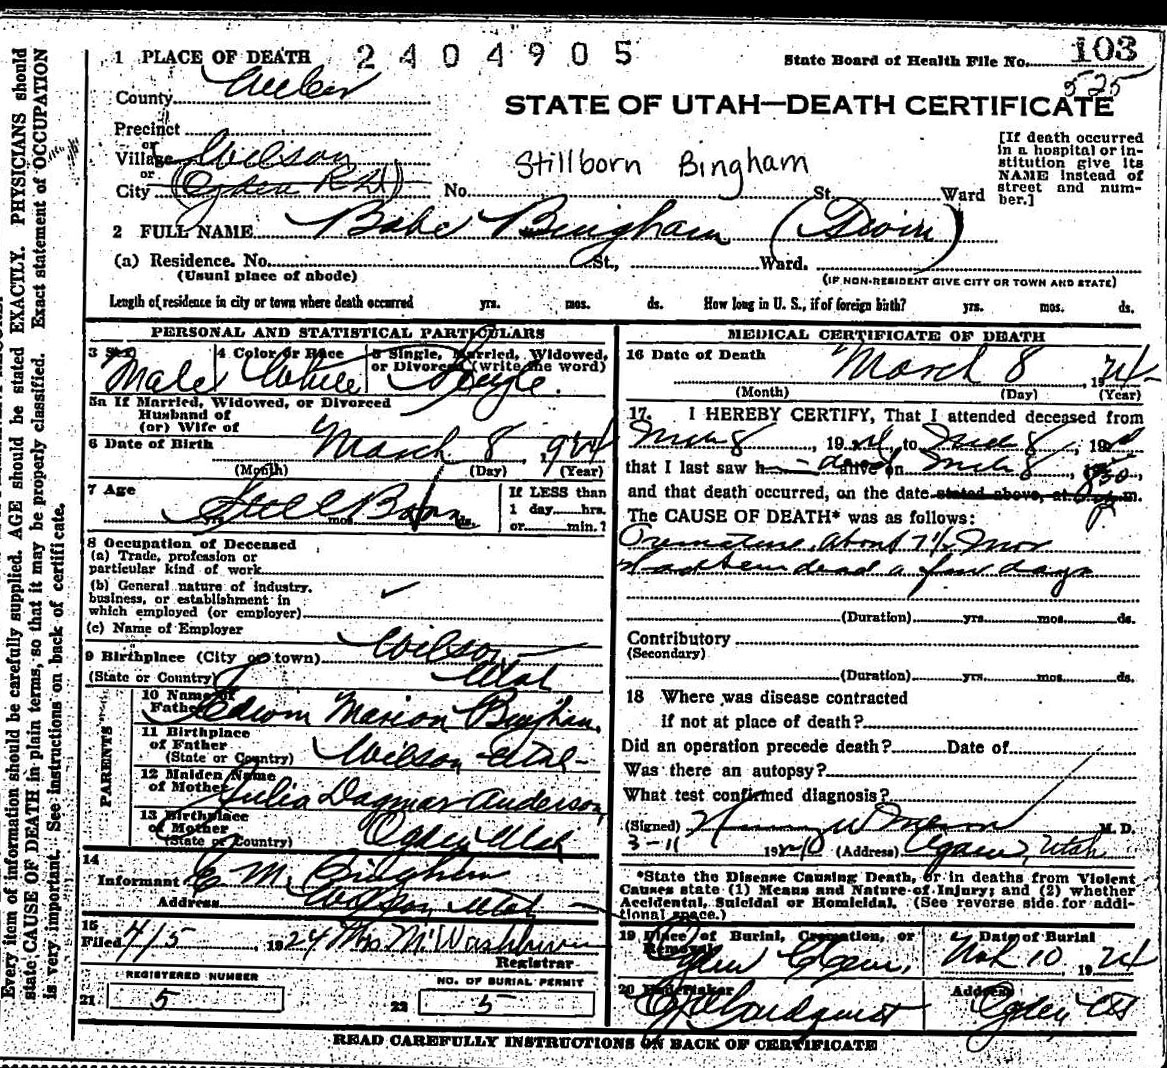 1 PLACE OF DEATH 2404905 State Board of Health File No. 103
525
County Weber
STATE OF UTAH—DEATH CERTIFICATE
Precinct
or
Village Wilson
or
City (Ogden RD1) No. St. Ward
Stillborn Bingham
[If death occurred
in a hospital or in-
stitution give its
NAME instead of
street and num-
ber.]
2 FULL NAME Babe Bingham (Twin)
(a) Residence. No. St., Ward.
(Usual place of abode) (IF NON-RESIDENT GIVE CITY OR TOWN AND STATE)
Length of residence in city or town where death occurred yrs. mos. ds. How long in U. S., if of foreign birth? yrs. mos. ds.
PERSONAL AND STATISTICAL PARTICULARS
3 Sex 4 Color or Race 5 Single, Married, Widowed,
or Divorced (write the word)
Male White Single.
5a If Married, Widowed, or Divorced
Husband of
(or) Wife of
6 Date of Birth March 8, 1924
(Month) (Day) (Year)
7 Age Still Born
yrs. mos. ds.
If LESS than
1 day hrs.
or min.?
8 Occupation of Deceased
(a) Trade, profession or
particular kind of work
(b) General nature of industry.
business, or establishment in
which employed (or employer)
(c) Name of Employer
9 Birthplace (City or town) Wilson
(State or Country) Utah
PARENTS
10 Name of
Father Edwom Marion Bingham.
11 Birthplace
of Father
(State or Country) Wilson Utah
12 Maiden Name
of Mother Julia Dagmar Anderson
13 Birthplace
of Mother
(State or Country) Ogden Utah
14
Informant E M Bingham
Address Wilson Utah
15
Filed 4/5, 1924 Mrs M. Washburn
Registrar
REGISTERED NUMBER NO. OF BURIAL PERMIT
21 5 22 5
MEDICAL CERTIFICATE OF DEATH
16 Date of Death March 8, 1924
(Month) (Day) (Year)
17. I HEREBY CERTIFY, That I attended deceased from
Mch 8, 1924, to Mch 8, 192
that I last saw h dead alive on Mch 8, 830
and that death occurred, on the date stated above, at m.
The CAUSE OF DEATH* was as follows:
Premature, about 7½ mos
Had been dead a few days
(Duration) yrs. mos. ds.
Contributory
(Secondary)
(Duration) yrs. mos. ds.
18 Where was disease contracted
if not at place of death?
Did an operation precede death? Date of
Was there an autopsy?
What test confirmed diagnosis?
(Signed) M. D.
3-11 192 (Address) Ogden, Utah
*State the Disease Causing Death, or in deaths from Violent
Causes state (1) Means and Nature of Injury; and (2) whether
Accidental, Suicidal or Homicidal. (See reverse side for addi-
tional space.)
19 Place of Burial, Cremation, or
Removal Date of Burial
Ogden Cem, Mch 10, 1924
20 Undertaker Address
Lindquist Ogden, Ut
READ CAREFULLY INSTRUCTIONS ON BACK OF CERTIFICATE
Every item of information should be carefully supplied. AGE should be stated EXACTLY. PHYSICIANS should
state CAUSE OF DEATH in plain terms, so that it may be properly classified. Exact statement of OCCUPATION
is very important. See instructions on back of certificate.